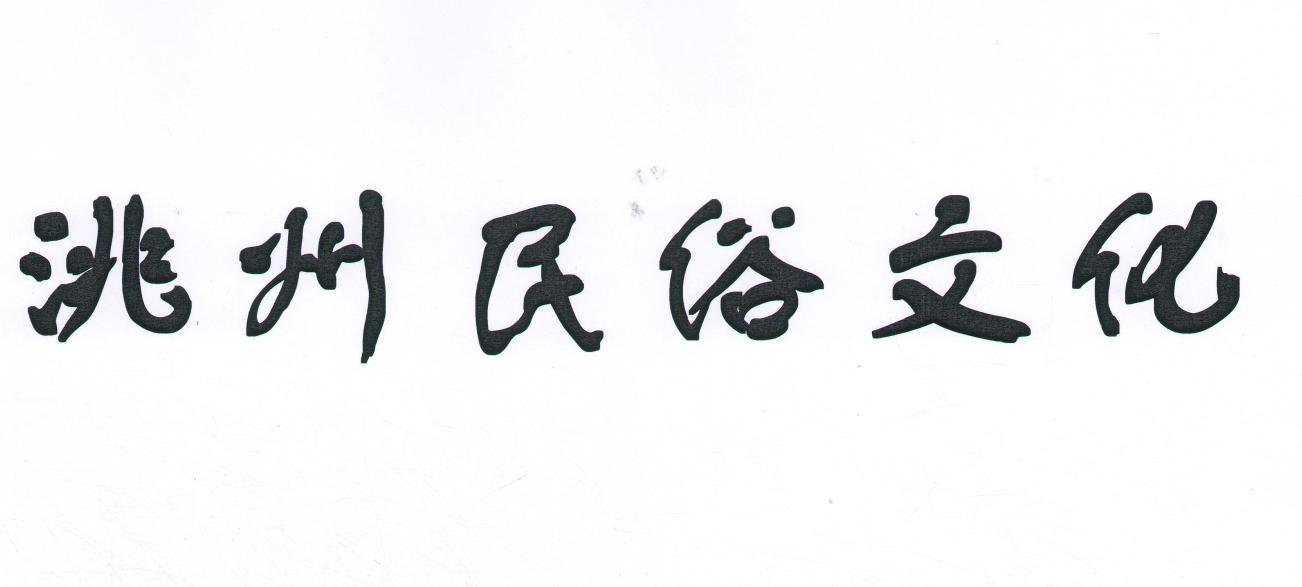 洮州民俗文化